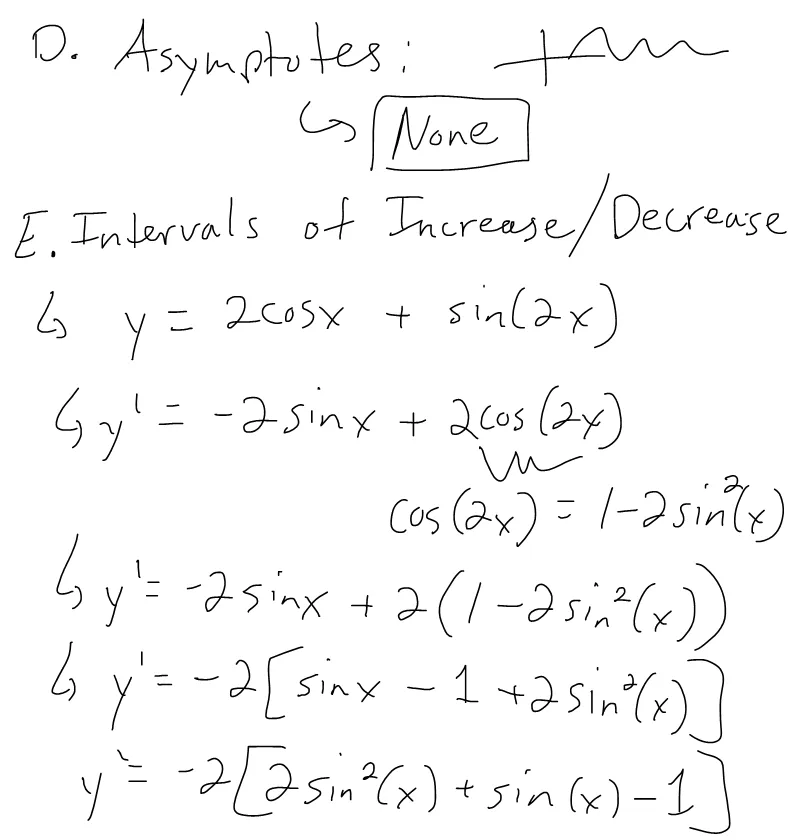 D. Asymptotes:
↳ None
E. Intervals of Increase/Decrease
↳ y = 2cosx + sin(2x)
↳ y' = -2sinx + 2cos(2x)
cos(2x) = 1-2sin²(x)
↳ y' = -2sinx + 2(1-2sin²(x))
↳ y' = -2[sinx - 1 +2sin²(x)]
y' = -2[2sin²(x) + sin(x) - 1]